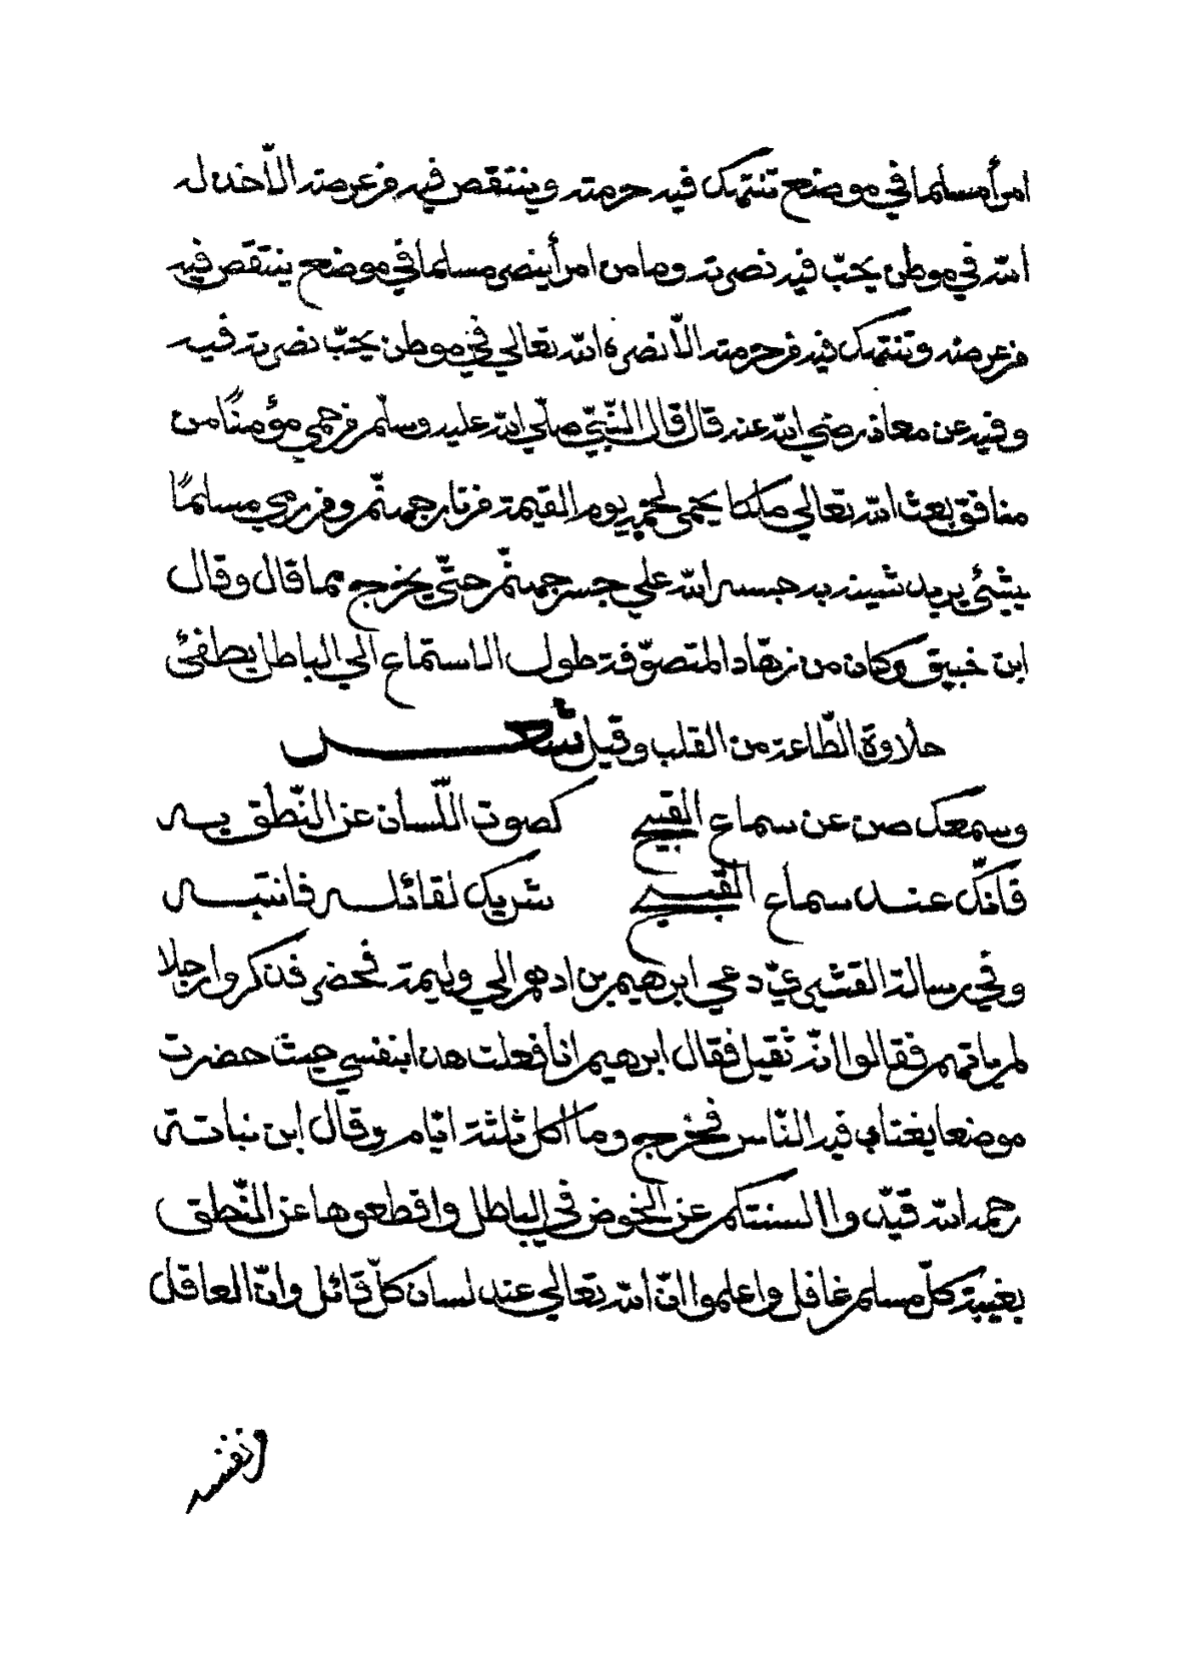 امرأ مسلما في موضع تنتهك فيه حرمته وينتقص فيه من عرضه الّا خذله
الله في موطن يحبّ فيه نصرته وما من امرأ ينصر مسلما في موضع ينتقص فيه
من عرضه وتنتهك فيه من حرمته الّا نصره الله تعالي في موطن يحبّ نصرته فيه
وفيه عن معاذ رضي الله عنه قال قال النّبيّ صلّي الله عليه وسلّم من حمي مؤمنًا من
منافق بعث الله تعالي ملكا يحمي لحمه يوم القيمة من نار جهنّم ومن رمي مسلمًا
بشئ يريد شينه به حبسه الله علي جسر جهنّم حتّي يخرج مما قال وقال
ابن خبيق وكان من زهّاد المتصوّفة طول الاستماع الي الباطل يطفئ
حلاوة الطّاعة من القلب وقيل شعر
وسمعك صن عن سماع القبيح كصوت اللّسان عن النّطق به
فانّك عند سماع القبيح شريك لقائله فانتبه
وفي رسالة القشيريّ دعي ابرهيم بن ادهم الي وليمة فحضر فذكروا رجلا
لم ياتهم فقالوا انّه ثقيل فقال ابرهيم انا فعلت هذا بنفسي حيث حضرت
موضعا يغتاب فيه النّاس فخرج وما اكل ثلثة ايّام وقال ابن نباتة
رحمه الله قيّدوا السنتكم عن الخوض في الباطل واقطعوها عن النّطق
بغيبة كلّ مسلم غافل واعلموا انّ الله تعالي عند لسان كلّ قائل وانّ العاقل
ونفسه